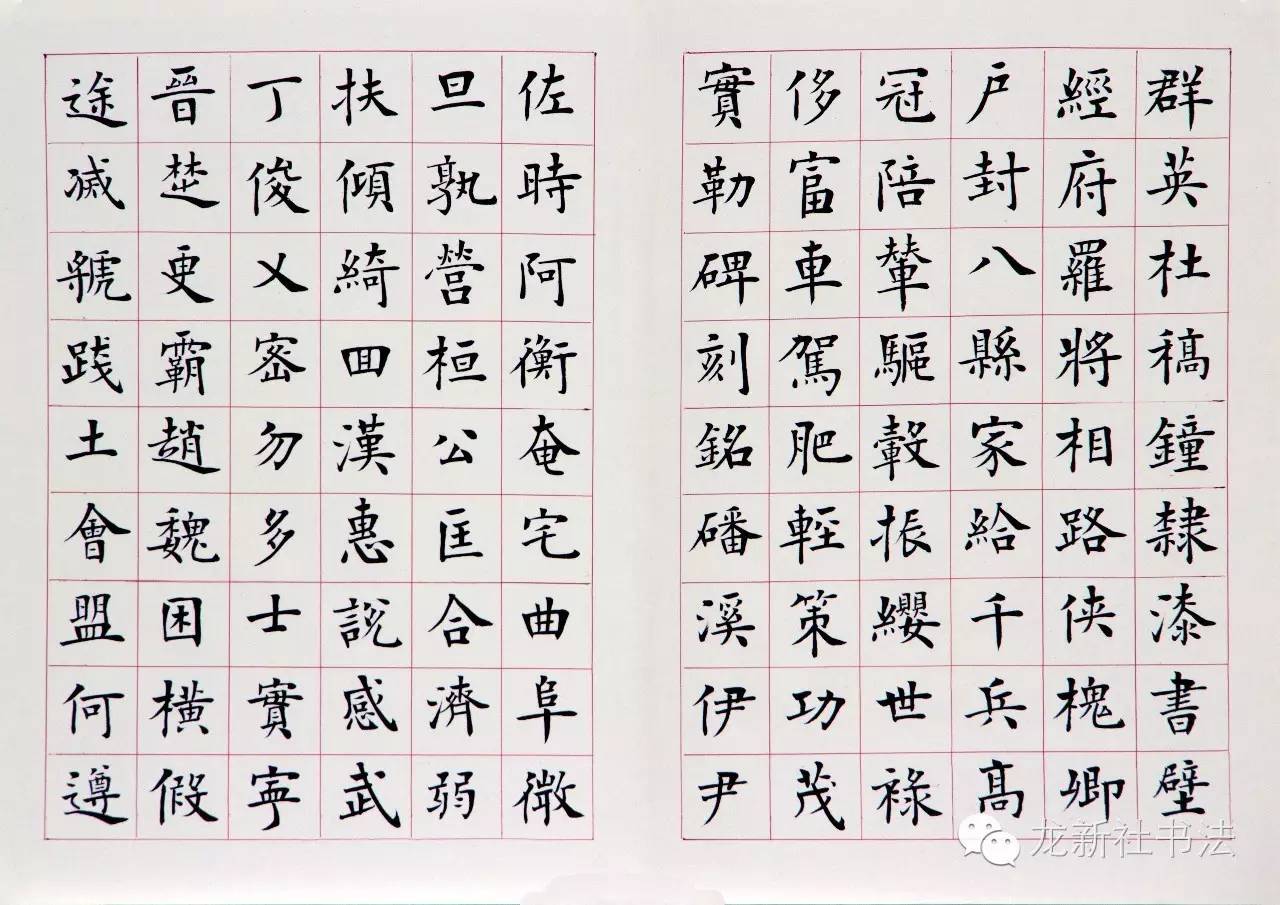 群英杜稿鐘隸漆書壁
經府羅將相路侠槐卿
户封八縣家給千兵高
冠陪輦驅轂振纓世祿
侈富車駕肥輕策功茂
實勒碑刻銘磻溪伊尹
佐時阿衡奄宅曲阜微
旦孰營桓公匡合濟弱
扶傾綺囬漢惠說感武
丁俊乂密勿多士實寧
晉楚更霸趙魏困橫假
途滅虢践土會盟何遵
龙新社书法